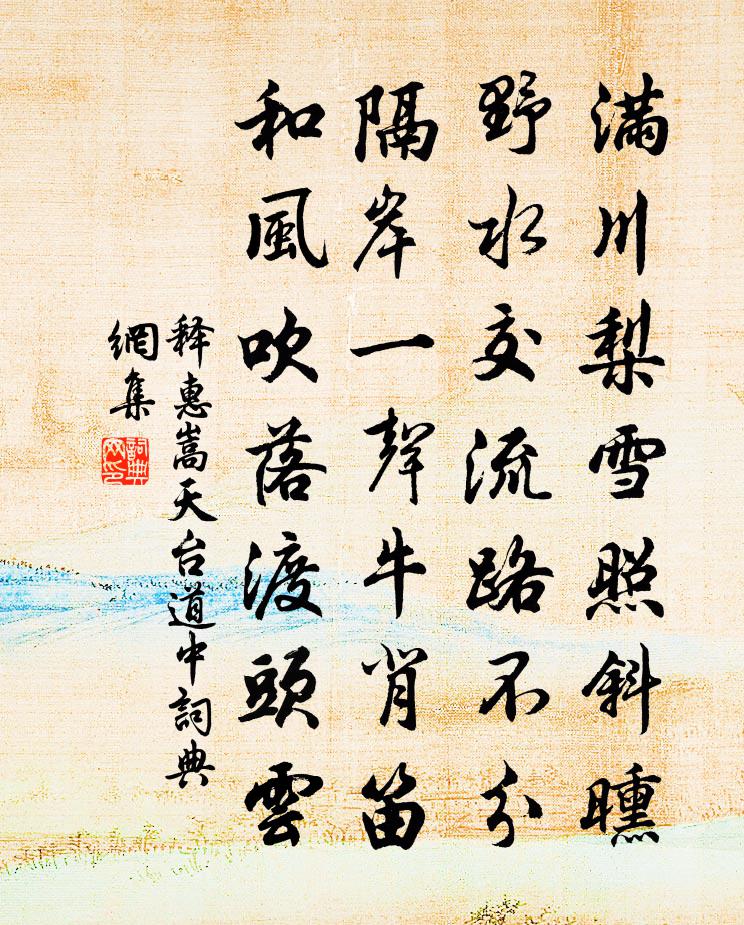 滿川梨雪照斜曛
野水交流路不分
隔岸一聲牛背笛
和風吹落渡頭雲
释惠嵩天台道中詞典
網集
詞典